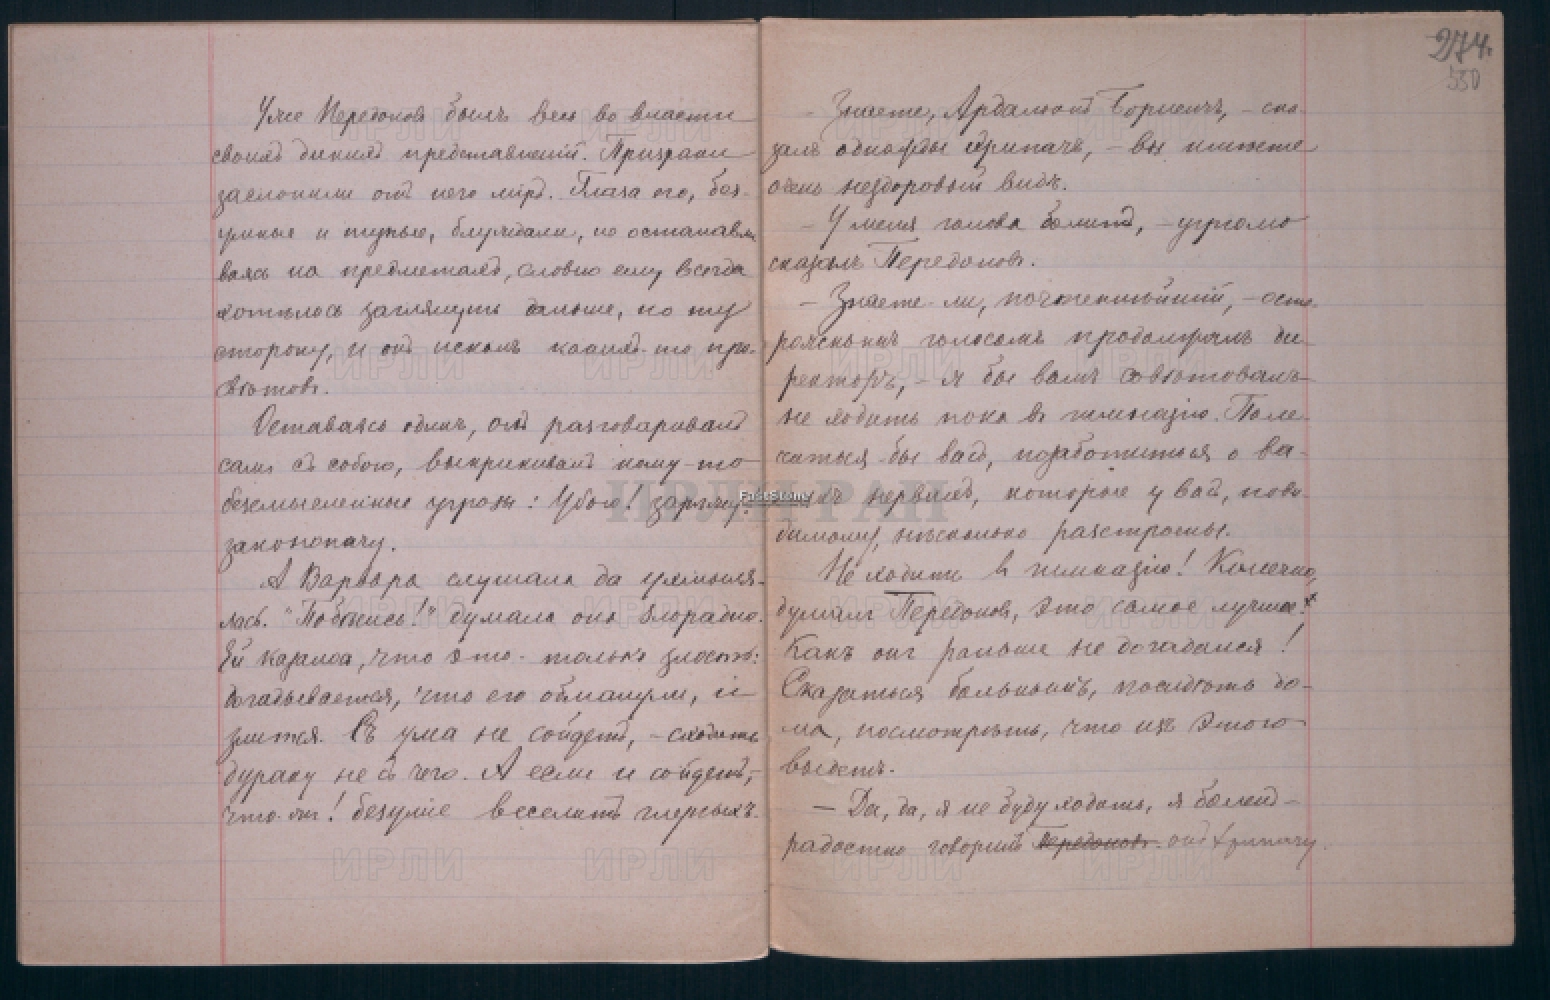 Уже Передоновъ былъ весь во власти
своихъ дикихъ представленій. Призраки
заслонили отъ него міръ. Глаза его, без-
умные и тупые, блуждали, не останавли
ваясь на предметахъ, словно ему всегда
хотѣлось заглянуть дальше, по ту
сторону, и онъ искалъ какихъ-то про-
свѣтовъ.
Оставаясь одинъ, онъ разговаривалъ
самъ съ собою, выкрикивалъ кому-то
безсмысленные угрозы: Убью! зарѣжу!
законопачу.
А Варвара слушала да ухмыля-
лась. "Побѣсись!" думала она злорадно.
Ей казалось, что это только злость:
догадывается, что его обманули, и
злится. Съ ума не сойдетъ, – сходить
дураку не съ чего. А если и сойдетъ, –
что-жъ! безуміе веселитъ глупыхъ.
274.
530
– Знаете, Ардальонъ Борисычъ, – ска-
залъ однажды Хрипачъ, – вы имѣете
очень нездоровый видъ.
– У меня голова болитъ, – угрюмо
сказалъ Передоновъ.
– Знаете-ли, почтеннѣйшій, – осто-
рожнымъ голосомъ продолжалъ ди-
ректоръ, – я бы вамъ совѣтовалъ
не ходить пока въ гимназію. Поле-
читься-бы вамъ, позаботиться о ва-
шихъ нервахъ, которые у васъ, пови-
димому, нѣсколько разстроены.
Не ходить въ гимназію! Конечно,
думалъ Передоновъ, это самое лучшее!
Какъ онъ раньше не догадался!
Сказаться больнымъ, посидѣть до-
ма, посмотрѣть, что изъ этого
выйдетъ.
– Да, да, я не буду ходить, я боленъ –
радостно говорилъ Передоновъ. онъ Хрипачу.
ИРЛИ РАН
FastStone